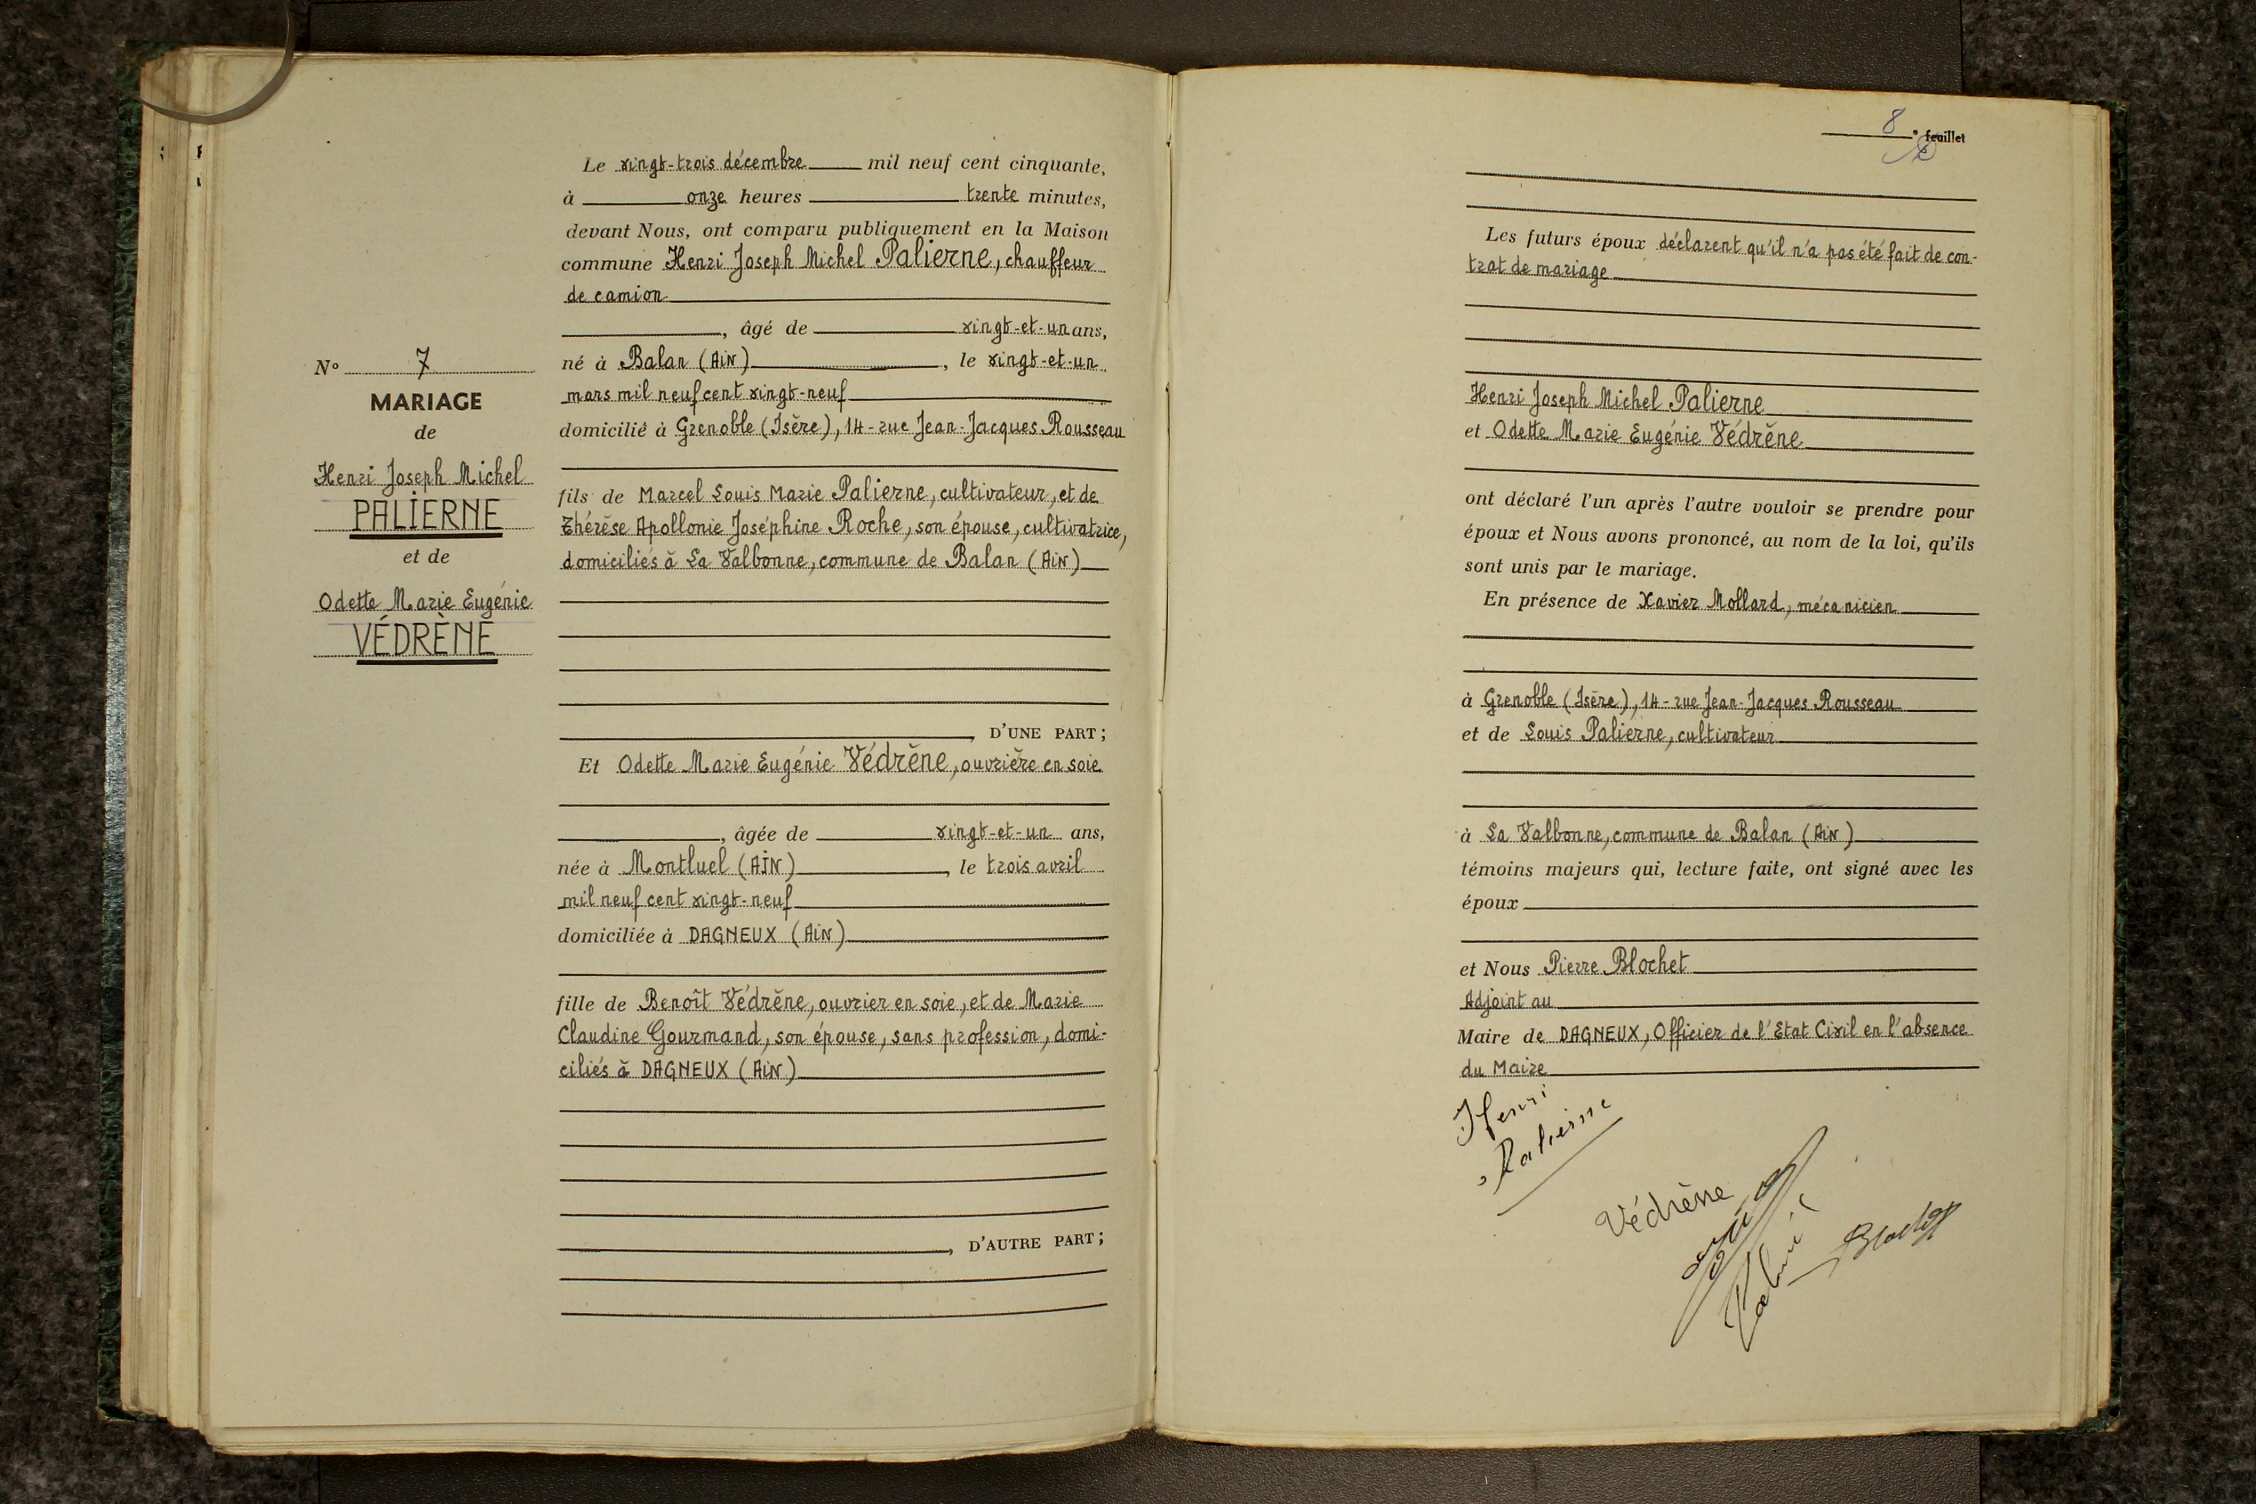 N° 7
MARIAGE
de
Henri Joseph Michel
PALIERNE
et de
Odette Marie Eugénie
VÉDRÈNE
Le vingt-trois décembre mil neuf cent cinquante,
à onze heures trente minutes,
devant Nous, ont comparu publiquement en la Maison
commune Henri Joseph Michel Palierne, chauffeur
de camion
, âgé de vingt-et-un ans,
né à Balan (Ain), le vingt-et-un
mars mil neuf cent vingt-neuf
domicilié à Grenoble (Isère), 14 - rue Jean-Jacques Rousseau
fils de Marcel Louis Marie Palierne, cultivateur, et de
Thérèse Apollonie Joséphine Roche, son épouse, cultivatrice,
domiciliés à La Valbonne, commune de Balan (Ain)
, D'UNE PART ;
Et Odette Marie Eugénie Védrène, ouvrière en soie
, âgée de vingt-et-un ans,
née à Montluel (Ain), le trois avril
mil neuf cent vingt-neuf
domiciliée à DAGNEUX (Ain)
fille de Benoît Védrène, ouvrier en soie, et de Marie
Claudine Gourmand, son épouse, sans profession, domi-
ciliés à DAGNEUX (Ain)
, D'AUTRE PART ;
8 e feuillet
Les futurs époux déclarent qu'il n'a pas été fait de con-
trat de mariage
Henri Joseph Michel Palierne
et Odette Marie Eugénie Védrène
ont déclaré l'un après l'autre vouloir se prendre pour
époux et Nous avons prononcé, au nom de la loi, qu'ils
sont unis par le mariage.
En présence de Xavier Mollard, mécanicien
à Grenoble (Isère), 14 - rue Jean-Jacques Rousseau
et de Louis Palierne, cultivateur
à La Valbonne, commune de Balan (Ain)
témoins majeurs qui, lecture faite, ont signé avec les
époux
et Nous Pierre Blochet
Adjoint au
Maire de DAGNEUX, Officier de l'Etat Civil en l'absence
du Maire
Henri
Palierne
Védrène
Blochet